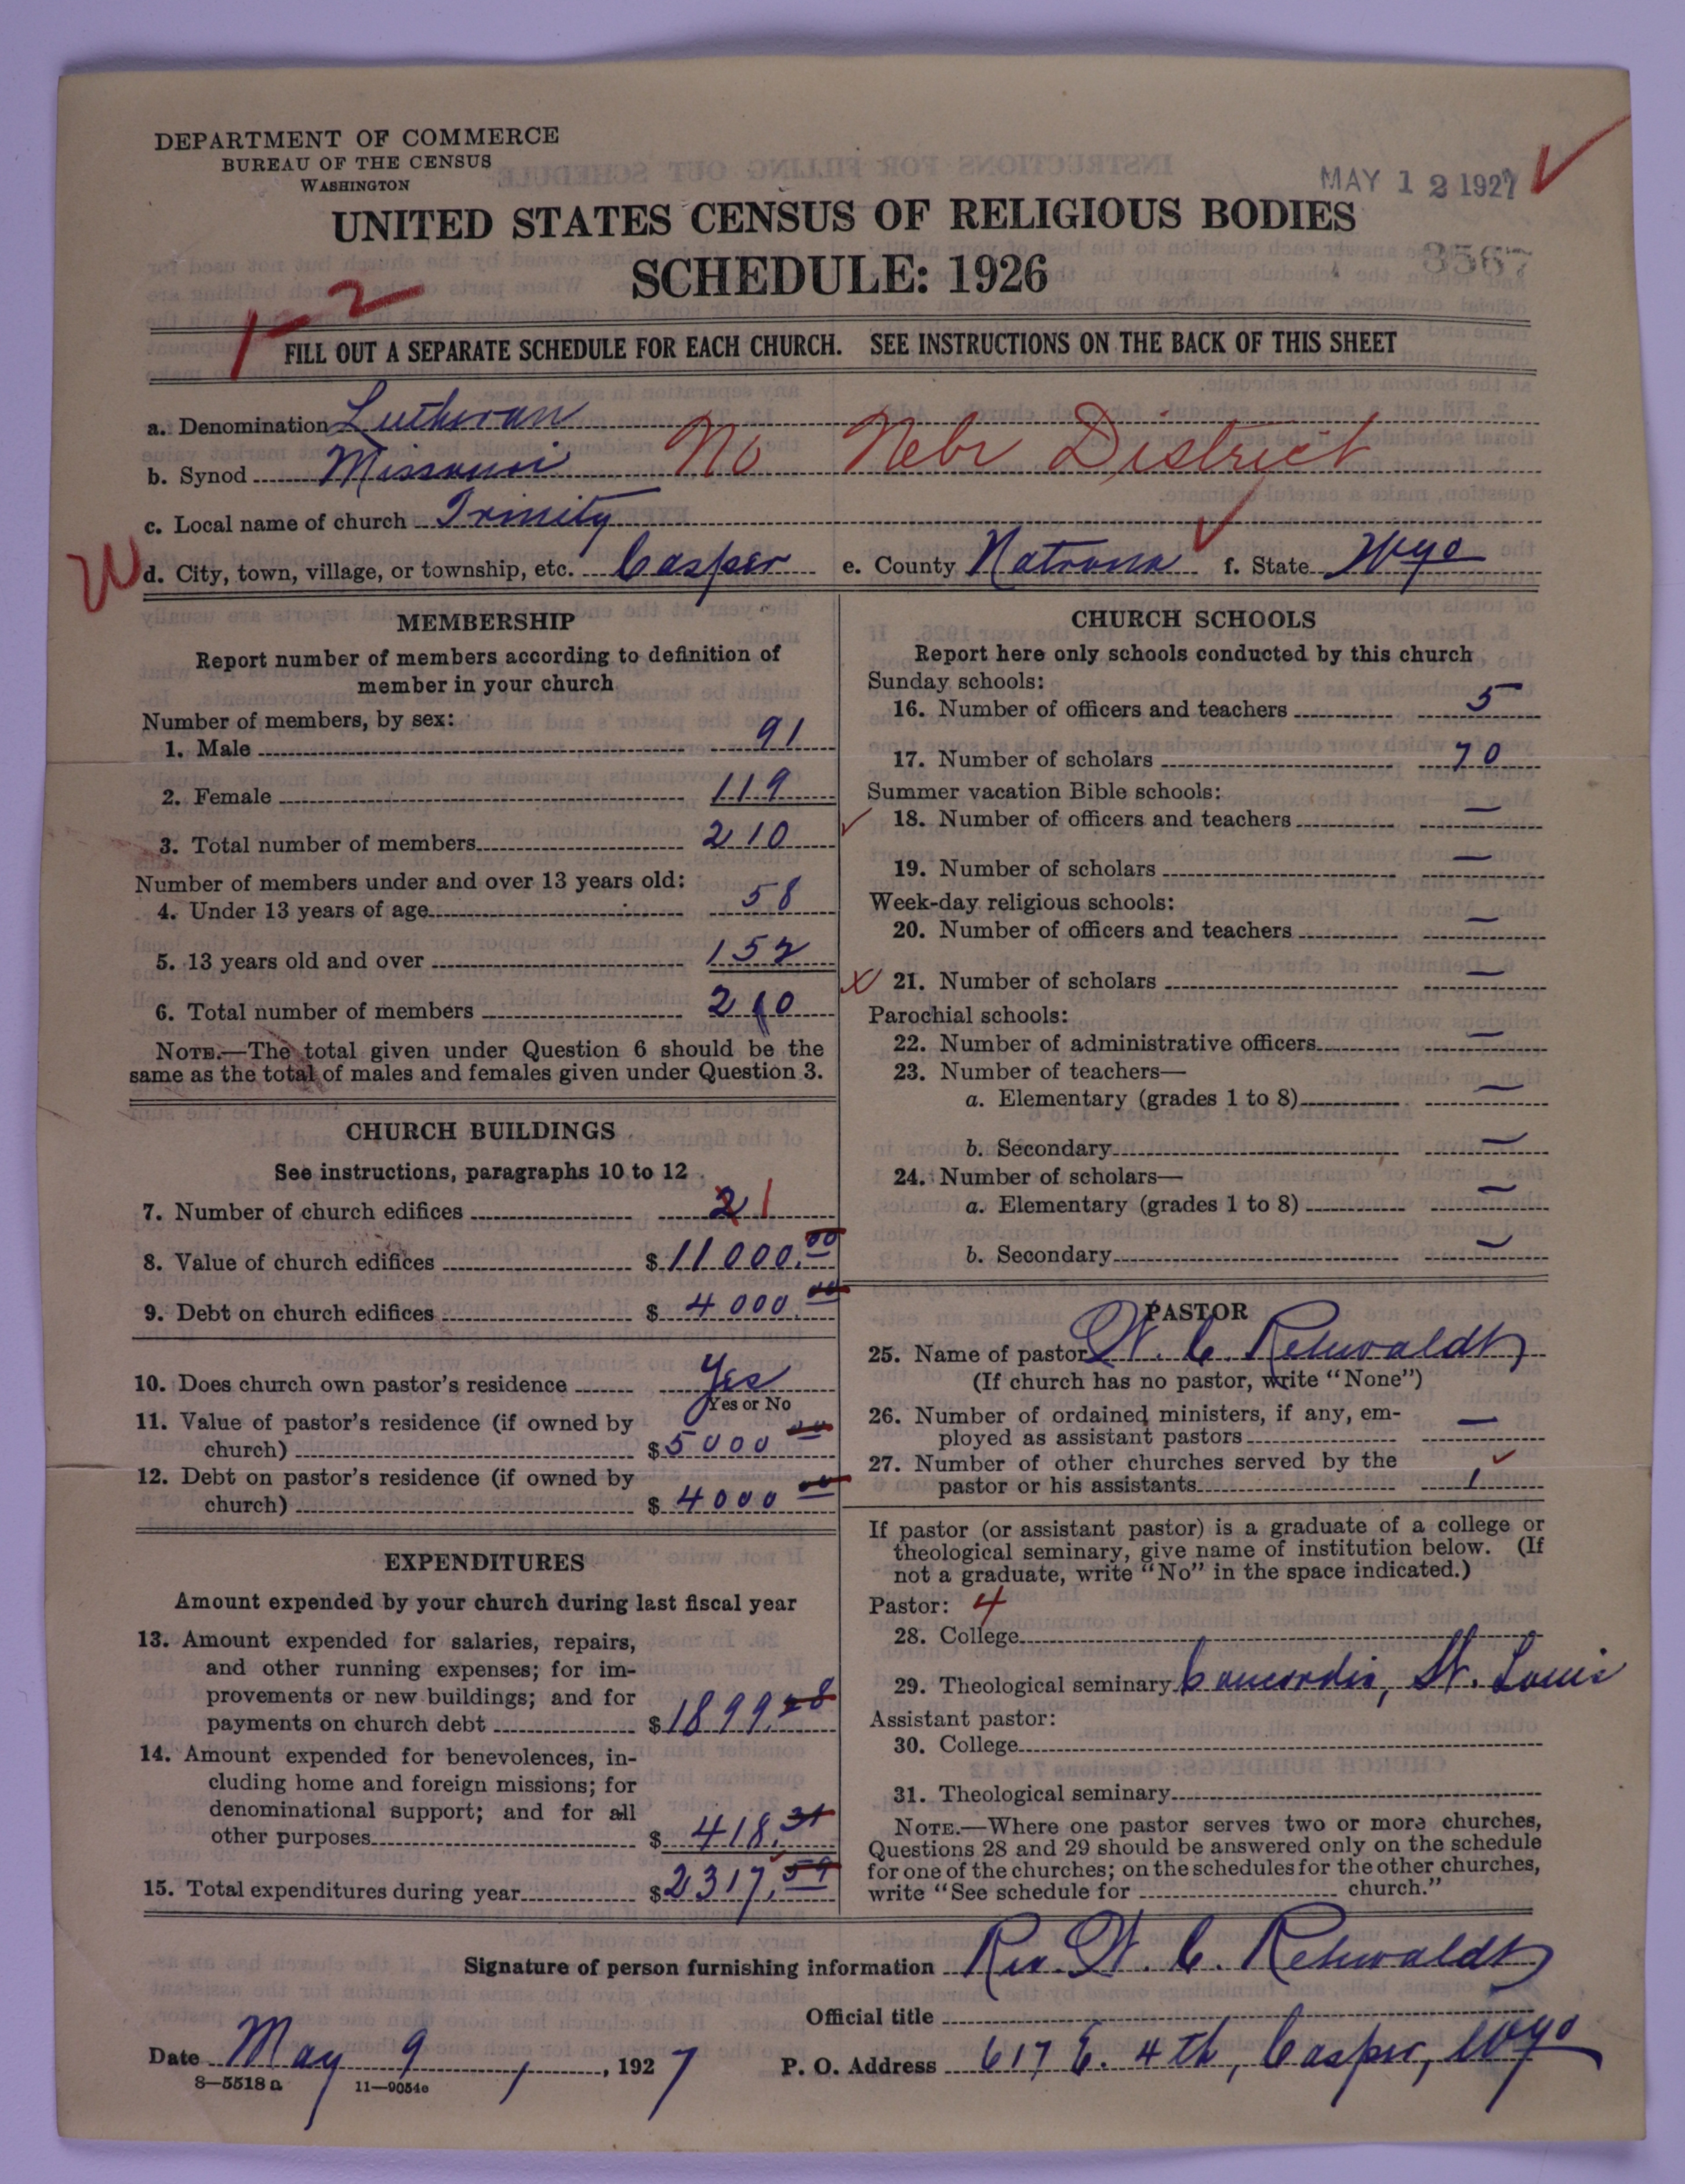 DEPARTMENT OF COMMERCE
BUREAU OF THE CENSUS
WASHINGTON
MAY 12 1927
UNITED STATES CENSUS OF RELIGIOUS BODIES
SCHEDULE: 1926
3567
1-2
FILL OUT A SEPARATE SCHEDULE FOR EACH CHURCH. SEE INSTRUCTIONS ON THE BACK OF THIS SHEET
a. Denomination Lutheran
b. Synod Missouri No Nebr District
c. Local name of church Trinity
W d. City, town, village, or township, etc. Casper e. County Natrona f. State Wyo
MEMBERSHIP
Report number of members according to definition of
member in your church
Number of members, by sex:
1. Male 91
2. Female 119
3. Total number of members 210
Number of members under and over 13 years old:
4. Under 13 years of age 58
5. 13 years old and over 152
6. Total number of members 210
NOTE.—The total given under Question 6 should be the
same as the total of males and females given under Question 3.
CHURCH BUILDINGS
See instructions, paragraphs 10 to 12
7. Number of church edifices 2 1
8. Value of church edifices $11000.00
9. Debt on church edifices $4000.00
10. Does church own pastor's residence Yes
Yes or No
11. Value of pastor's residence (if owned by
church) $5000 00
12. Debt on pastor's residence (if owned by
church) $4000 00
EXPENDITURES
Amount expended by your church during last fiscal year
13. Amount expended for salaries, repairs,
and other running expenses; for im-
provements or new buildings; and for
payments on church debt $1899.28
14. Amount expended for benevolences, in-
cluding home and foreign missions; for
denominational support; and for all
other purposes $418.31
15. Total expenditures during year $2317.59
CHURCH SCHOOLS
Report here only schools conducted by this church
Sunday schools:
16. Number of officers and teachers 5
17. Number of scholars 70
Summer vacation Bible schools:
18. Number of officers and teachers —
19. Number of scholars —
Week-day religious schools:
20. Number of officers and teachers —
21. Number of scholars —
Parochial schools:
22. Number of administrative officers —
23. Number of teachers—
a. Elementary (grades 1 to 8) —
b. Secondary —
24. Number of scholars—
a. Elementary (grades 1 to 8) —
b. Secondary —
PASTOR
25. Name of pastor W. C. Rehwaldt
(If church has no pastor, write "None")
26. Number of ordained ministers, if any, em-
ployed as assistant pastors —
27. Number of other churches served by the
pastor or his assistants 1
If pastor (or assistant pastor) is a graduate of a college or
theological seminary, give name of institution below. (If
not a graduate, write "No" in the space indicated.)
Pastor: 4
28. College
29. Theological seminary Concordia, St. Louis
Assistant pastor:
30. College
31. Theological seminary
NOTE.—Where one pastor serves two or more churches,
Questions 28 and 29 should be answered only on the schedule
for one of the churches; on the schedules for the other churches,
write "See schedule for church."
Signature of person furnishing information Rev. W. C. Rehwaldt
Official title
Date May 9, 1927 P. O. Address 617 E. 4th, Casper, Wyo
8—5518 a 11—9054e